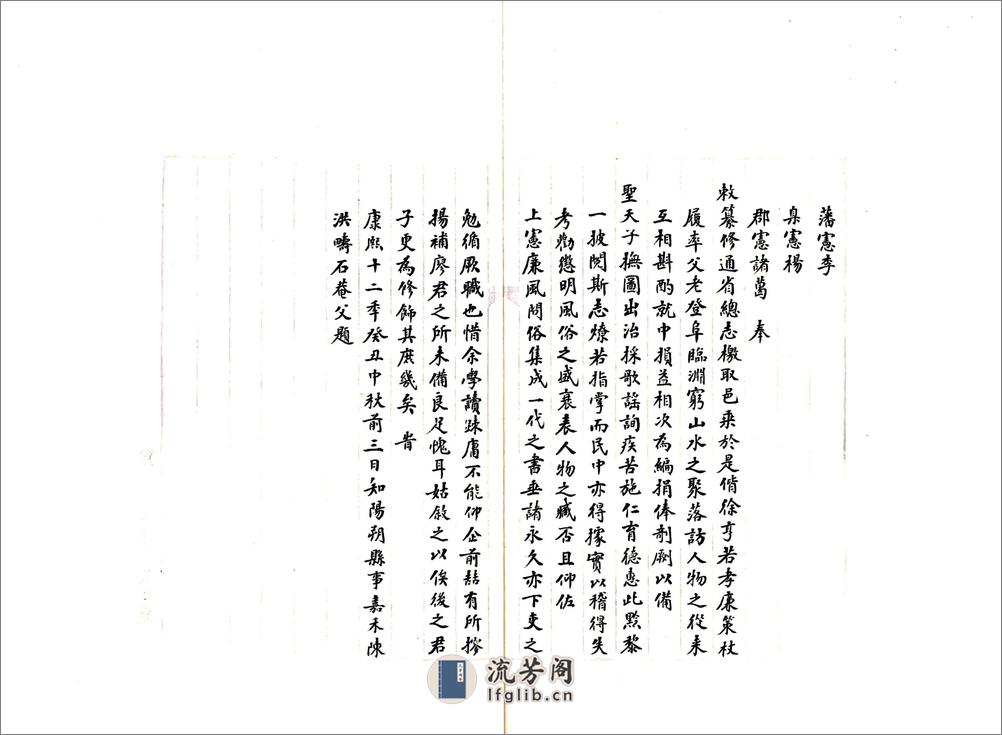 藩憲李
臬憲楊
郡憲諸葛 奉
敕纂修通省總志檄取邑乘於是偕徐亨若孝廉策杖
履率父老登阜臨淵窮山水之聚落訪人物之從来
互相斟酌就中損益相次為編捐俸剞劂以備
聖天子撫圖出治採歌謡詢疾苦施仁育德惠此黙黎
一披閱斯志燎若指掌而民中亦得據實以稽得失
考勸懲明風俗之盛衰表人物之臧否且仰佐
上憲廉風問俗集成一代之書垂諸永久亦下吏之
勉循厥職也惜余學讀踈庸不能仰企前喆有所揄
揚補廖君之所未備良足愧耳姑叙之以俟後之君
子更為修飾其庶幾矣 旹
康熙十二季癸丑中秋前三日知陽朔縣事嘉禾陳
洪疇石菴父題
流芳阁
lfglib.cn